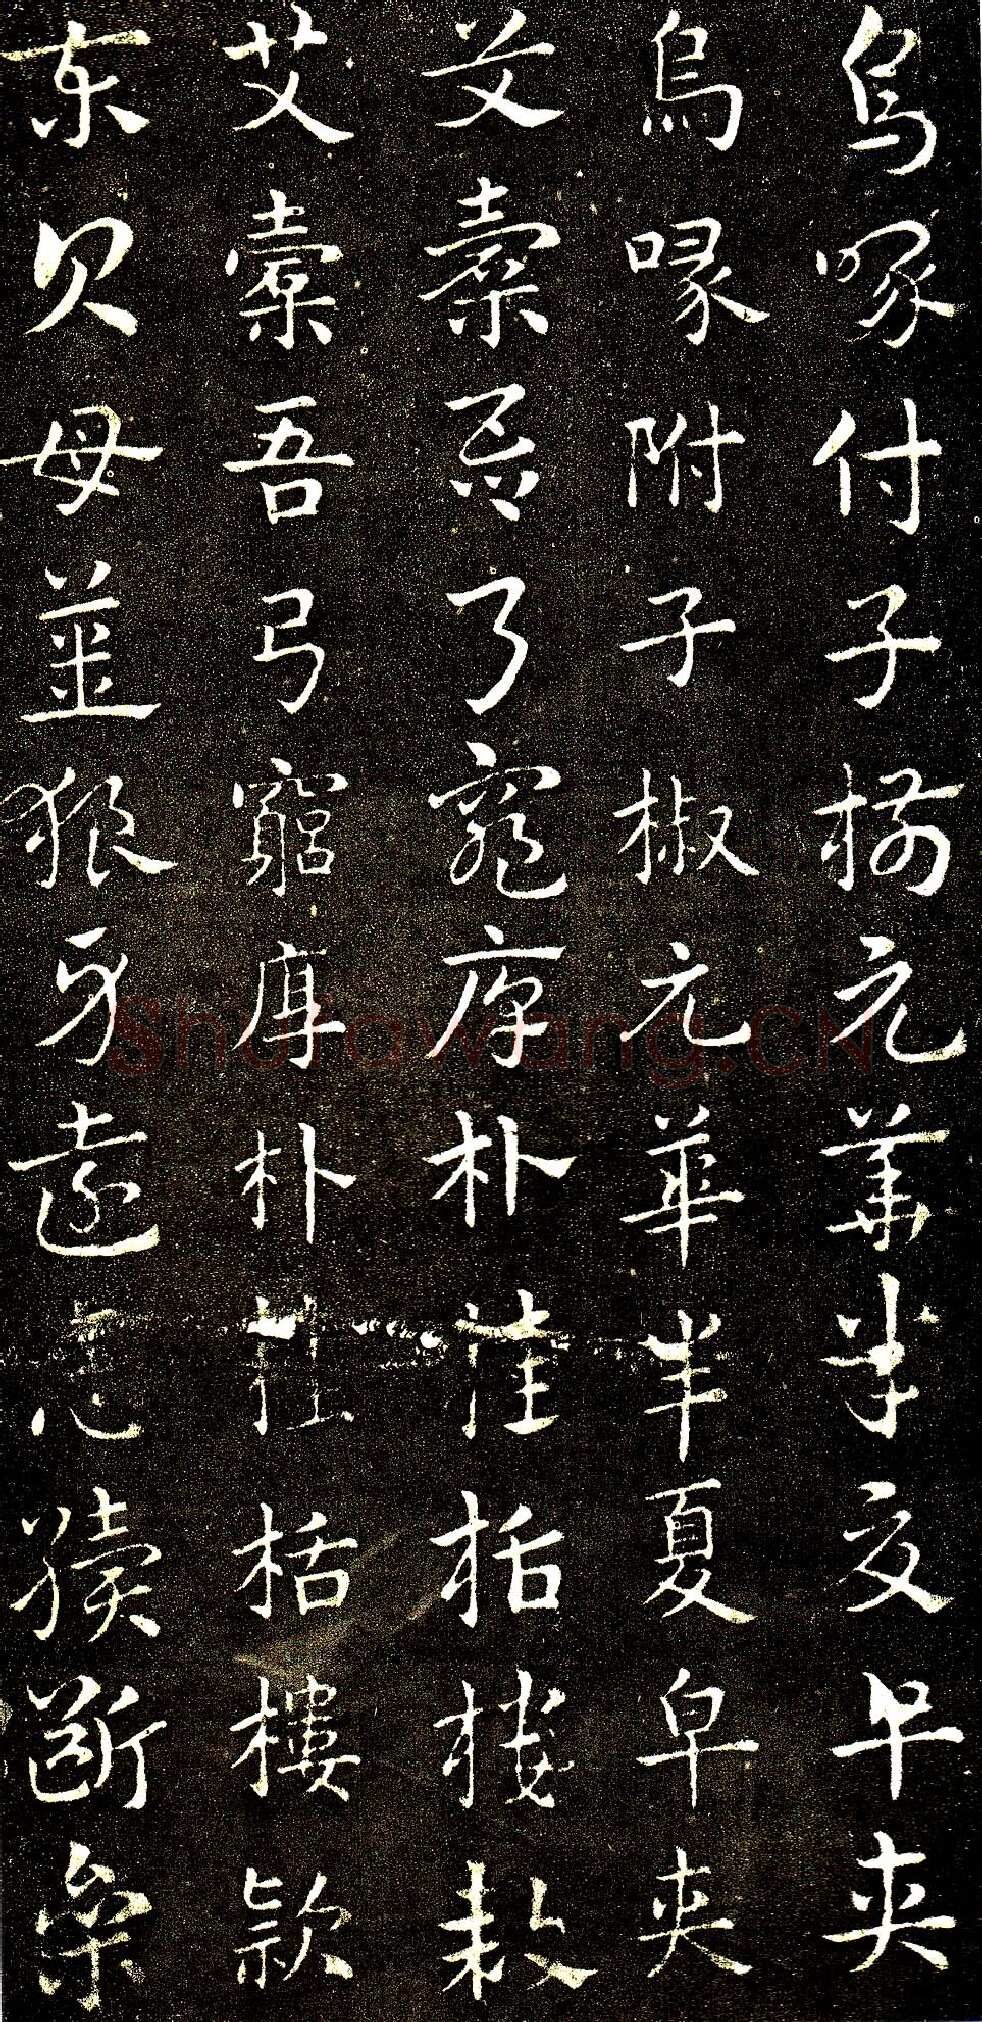 烏喙付子椒元華半夏皁夾
烏喙附子椒元華半夏皁夾
艾橐吾弓窮厚朴桂栝樓款
艾橐吾弓窮厚朴桂栝樓款
東貝母薑狼牙遠志續斷參
Shufawang.CN